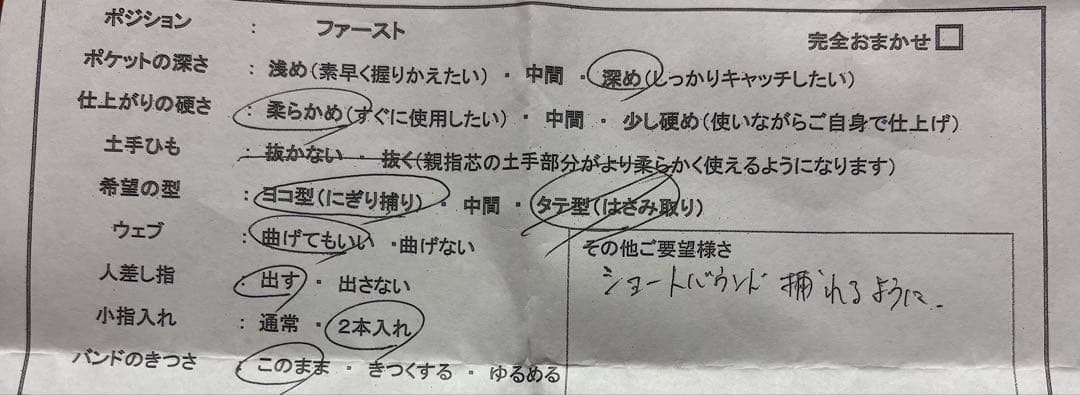 ポジション : ファースト
完全おまかせ□
ポケットの深さ : 浅め(素早く握りかえたい) ・ 中間 ・ 深め(しっかりキャッチしたい)
仕上がりの硬さ : 柔らかめ(すぐに使用したい) ・ 中間 ・ 少し硬め(使いながらご自身で仕上げ)
土手ひも : 抜かない ・ 抜く(親指芯の土手部分がより柔らかく使えるようになります)
希望の型 : ヨコ型(にぎり捕り) ・ 中間 ・ タテ型(はさみ取り)
ウェブ : 曲げてもいい ・曲げない
人差し指 : 出す ・ 出さない
小指入れ : 通常 ・ 2本入れ
バンドのきつさ : このまま ・ きつくする ・ ゆるめる
その他ご要望様さ
ショートバウンド 捕れるように.